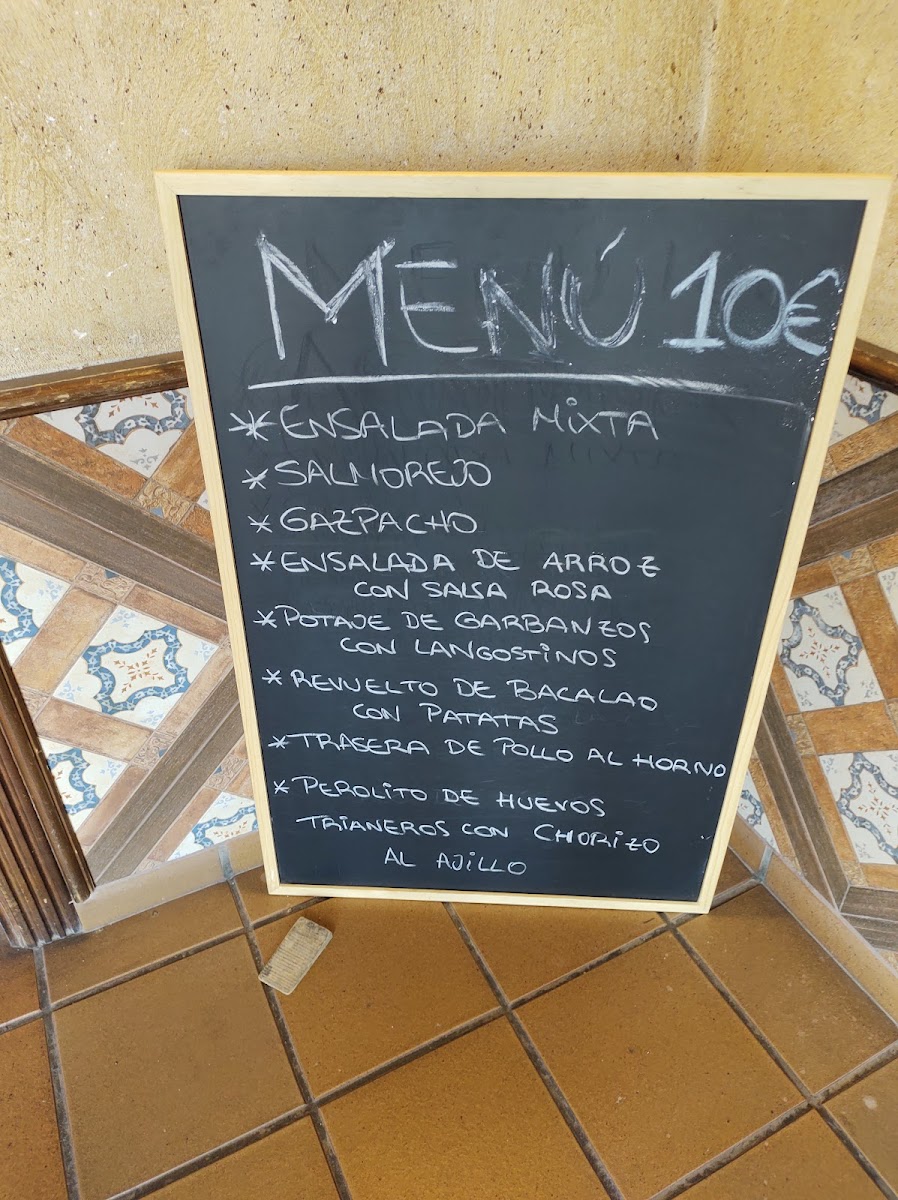 MENÚ 10€
* ENSALADA MIXTA
* SALMOREJO
* GAZPACHO
* ENSALADA DE ARROZ
CON SALSA ROSA
* POTAJE DE GARBANZOS
CON LANGOSTINOS
* REVUELTO DE BACALAO
CON PATATAS
* TRASERA DE POLLO AL HORNO
* PEROLITO DE HUEVOS
TRIANEROS CON CHORIZO
AL AJILLO